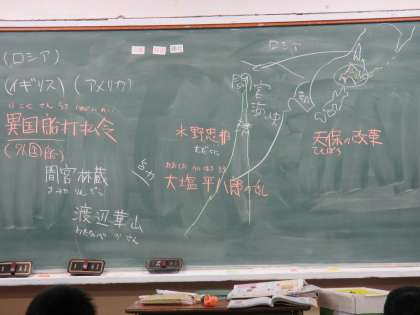 (ロシア)
(イギリス)(アメリカ)
いこくせんうちはらいれい
異国船打払令
(外国船)
間宮林蔵
まみやりんぞう
渡辺華山
わたなべかざん
水野忠邦
大塩平八郎の乱
ロシア
間宮海峡
天保の改革
てんぽう